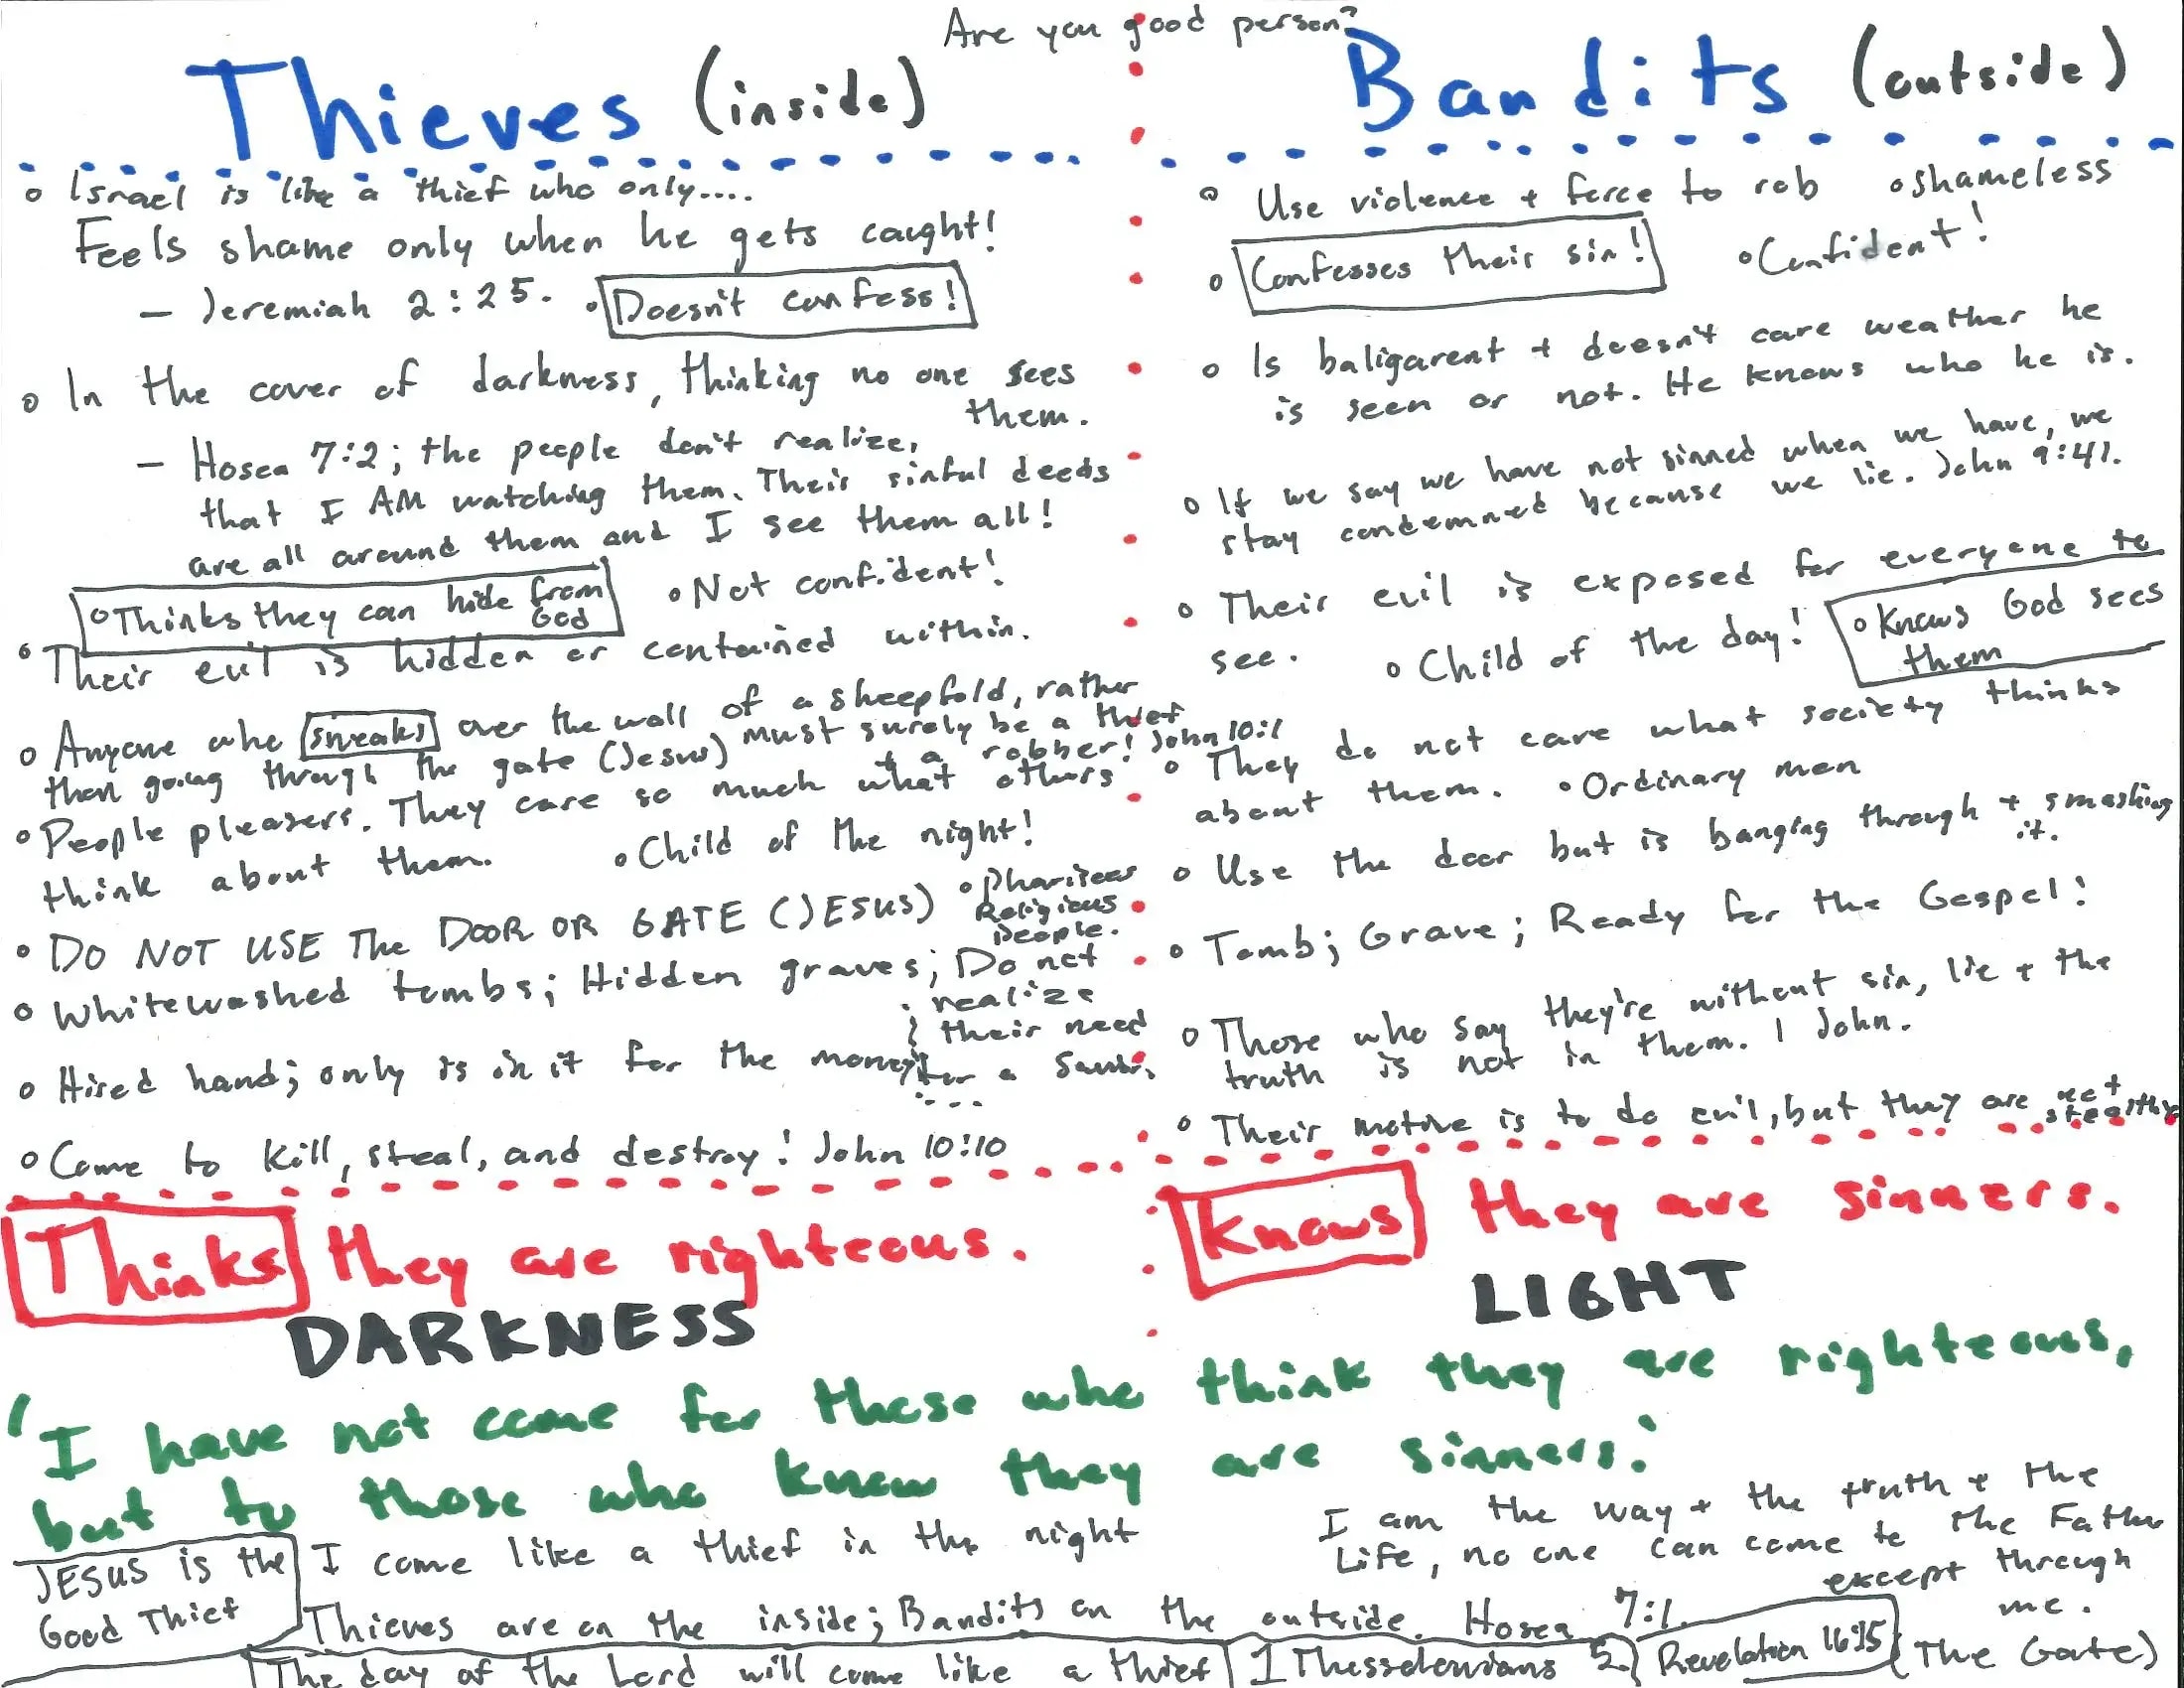 Are you good person?
Thieves (inside)
o Israel is like a thief who only....
Feels shame only when he gets caught!
– Jeremiah 2:25. o Doesn't confess!
o In the cover of darkness, thinking no one sees
them.
– Hosea 7:2; the people don't realize,
that I AM watching them. Their sinful deeds
are all around them and I see them all!
o Thinks they can hide from
God
o Not confident!
o Their evil is hidden or contained within.
o Anyone who sneaks over the wall of a sheepfold, rather
than going through the gate (Jesus) must surely be a thief
+ a robber! John 10:1
o People pleasers. They care so much what others
think about them. o Child of the night!
o DO NOT USE The DOOR OR GATE (JESUS)
o Pharisees
Religious
people.
o Whitewashed tombs; Hidden graves; Do not
realize
their need
for a Savior.
o Hired hand; only is in it for the money
o Come to kill, steal, and destroy! John 10:10
Thinks they are righteous.
DARKNESS
Bandits (outside)
o Use violence + force to rob o shameless
o Confesses their sin! o Confident!
o Is baligarent + doesn't care weather he
is seen or not. He knows who he is.
o If we say we have not sinned when we have, we
stay condemned because we lie. John 9:41.
o Their evil is exposed for everyone to
see. o Child of the day! o Knows God sees
them
o They do not care what society thinks
about them. o Ordinary men
o Use the door but is banging through + smashing
it.
o Tomb; Grave; Ready for the Gospel!
o Those who say they're without sin, lie + the
truth is not in them. 1 John.
o Their motive is to do evil, but they are not
stealthy
Knows they are sinners.
LIGHT
'I have not come for those who think they are righteous,
but to those who know they are sinners.'
JESUS is the
Good Thief
I come like a thief in the night
I am the way + the truth + the
Life, no one can come to the Father
except through
me.
(The Gate)
Thieves are on the inside; Bandits on the outside. Hosea 7:1.
The day of the Lord will come like a thief 1 Thessalonians 5. Revelation 16:15